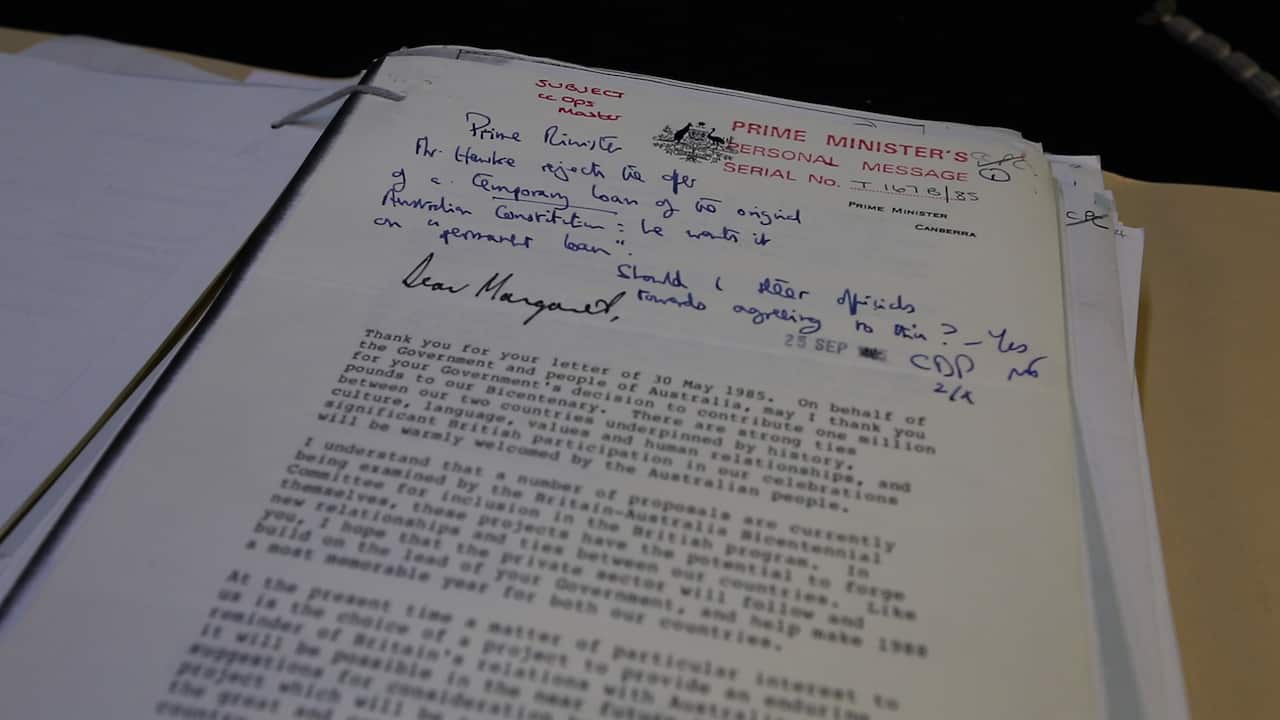 SUBJECT
cc Ops
Master
PRIME MINISTER'S
PERSONAL MESSAGE
SERIAL No. T 167B/85
1
PRIME MINISTER
CANBERRA
Prime Minister
Mr. Hawke rejects the offer
of a temporary loan of the original
Australian Constitution: he wants it
on a "permanent loan".
Should I steer officials
towards agreeing to this? - Yes
CDP
2/X
25 SEP
Dear Margaret,
Thank you for your letter of 30 May 1985. On behalf of
the Government and people of Australia, may I thank you
for your Government's decision to contribute one million
pounds to our Bicentenary. There are strong ties
between our two countries underpinned by history,
culture, language, values and human relationships, and
significant British participation in our celebrations
will be warmly welcomed by the Australian people.
I understand that a number of proposals are currently
being examined by the Britain-Australia Bicentennial
Committee for inclusion in the British program. In
themselves, these projects have the potential to forge
new relationships and ties between our countries. Like
you, I hope that the private sector will follow and
build on the lead of your Government, and help make 1988
a most memorable year for both our countries.
At the present time a matter of particular interest to
us is the choice of a project to provide an enduring
reminder of Britain's relations with Australia
suggestions for consideration
it will be possible in the near future
project which will be
the great and